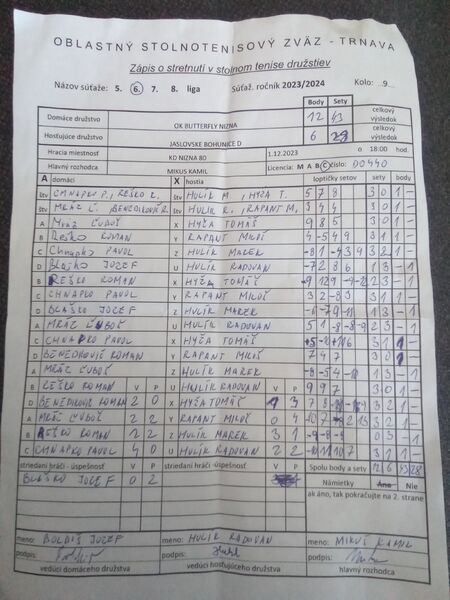 OBLASTNÝ STOLNOTENISOVÝ ZVÄZ - TRNAVA
Zápis o stretnutí v stolnom tenise družstiev
Názov súťaže: 5. 6. 7. 8. liga Súťaž. ročník 2023/2024 Kolo: ..9...
Body Sety celkový výsledok
Domáce družstvo OK BUTTERFLY NIZNA 12 43
Hosťujúce družstvo JASLOVSKE BOHUNICE D 6 28 celkový výsledok
Hracia miestnosť KD NIZNA 80 1.12.2023 o 18:00 hod.
Hlavný rozhodca MIKUS KAMIL Licencia: M A B C číslo: D0440
A domáci X hostia loptičky setov sety body
štv CHNAPKO P., REŠKO R. štv HULÍK M, HYŽA T. 5 7 8 3 0 1 -
štv MRÁZ Ľ. BENEDIKOVIČ R. štv HULÍK R., RAPANT M, 3 4 4 3 0 1 -
A MRÁZ ĽUBOŠ X HYŽA TOMÁŠ 9 8 5 3 0 1 -
B REŠKO ROMAN Y RAPANT MILOŠ 4 -5 4 9 3 1 1 -
C CHNAPKO PAVOL Z HULÍK MAREK 3 2 1 -
D BLAŠKO JOZEF U HULÍK RADOVAN -7 2 8 6 1 3 - 1
B REŠKO ROMAN X HYŽA TOMÁŠ 2 3 - 1
C CHNAPKO PAVOL Y RAPANT MILOŠ 3 2 -8 3 3 1 1 -
D BLAŠKO JOZEF Z HULÍK MAREK 1 3 - 1
A MRÁZ ĽUBOŠ U HULÍK RADOVAN 5 1 -8 -8 -9 2 3 - 1
C CHNAPKO PAVOL X HYŽA TOMÁŠ 3 1 1 -
D BENEDIKOVIČ ROMAN Y RAPANT MILOŠ 7 4 7 3 0 1 -
A MRÁZ ĽUBOŠ Z HULÍK MAREK 1 3 - 1
B REŠKO ROMAN V P U HULÍK RADOVAN V P 9 9 7 3 0 1 -
D BENEDIKOVIČ ROMAN 2 0 X HYŽA TOMÁŠ 1 3 3 1 1 -
A MRÁZ ĽUBOŠ 2 2 Y RAPANT MILOŠ 0 4 3 2 1 -
B REŠKO ROMAN 2 2 Z HULÍK MAREK 3 1 0 3 - 1
C CHNAPKO PAVOL 4 0 U HULÍK RADOVAN 2 2 3 1 1 -
striedaní hráči - úspešnosť V P striedaní hráči - úspešnosť V P Spolu body a sety 12 6 43 28
BLAŠKO JOZEF 0 2 Námietky Áno Nie
ak áno, tak pokračujte na 2. strane
meno: BOLDIŠ JOZEF meno: HULIK RADOVAN meno: MIKUŠ KAMIL
podpis: podpis: podpis:
vedúci domáceho družstva vedúci hosťujúceho družstva hlavný rozhodca